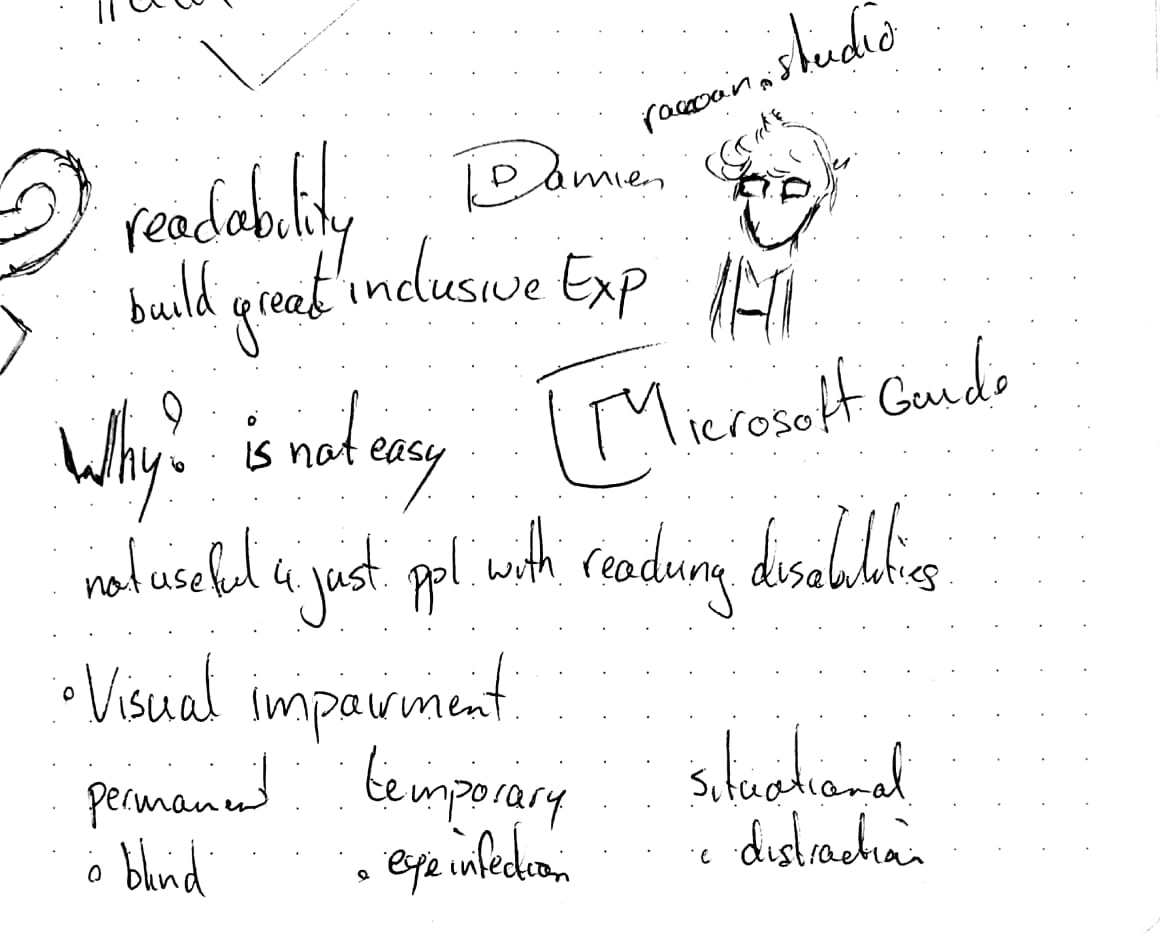 raccoon.studio
Damien
readability
build great inclusive Exp
Why? is not easy
Microsoft Guide
not useful 4 just ppl with reading disabilities
Visual impairment
permanent temporary situational
blind eye infection distraction